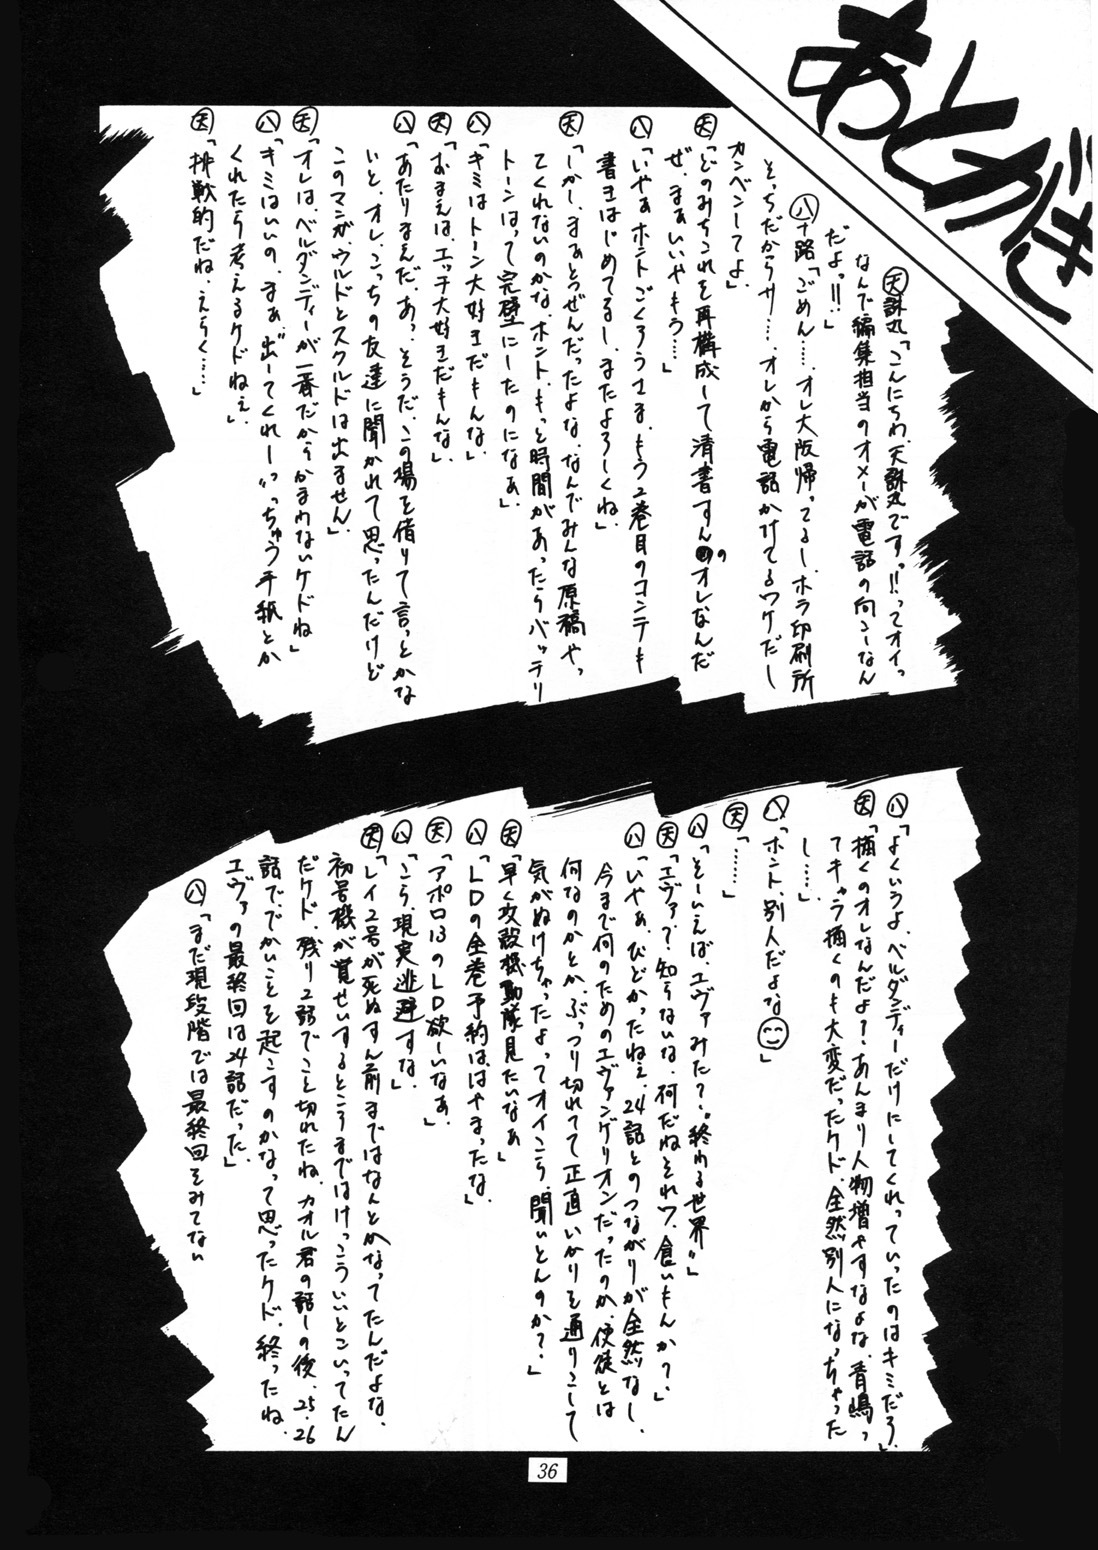 あとがき
㊝誅丸「こんにちわ、天誅丸ですっ!!ってオイっ
なんで編集担当のオメーが電話の向こーなん
だよっ!!」
㊇十路「ごめん……、オレ大阪帰ってるし、ホラ印刷所
そっちだからサ……、オレから電話かけてるワケだし
カンベンしてよ」
天「どのみちこれを再構成して清書すんのオレなんだ
ぜ、まぁいいやもう……」
八「いやぁホントごくろうさま、もう2巻目のコンテも
書きはじめてるし、またよろしくね」
天「しかし、まぁとうぜんだったよな、なんでみんな原稿やっ
てくれないのかな、ホント、もっと時間があったらバッチリ
トーンはって完璧にしたのになぁ」
八「キミはトーン大好きだもんな」
天「おまえは、エッチ大好きだもんな」
八「あたりまえだ、あっ、そうだ、この場を借りて言っとかな
いと、オレ、こっちの友達に聞かれて思ったんだけど
このマンガ、ウルドとスクルドは出ません」
天「オレは、ベルダンディーが一番だからかまわないケドね」
八「キミはいいの、まぁ“出ーてくれー”っちゅう手紙とか
くれたら考えるケドねぇ」
天「挑戦的だね、えらく……」
八「よくいうよ、ベルダンディーだけにしてくれっていったのはキミだろ」
天「描くのオレなんだよ?あんまり人物増やすなよな、青嶋っ
てキャラ描くのも大変だったケド、全然別人になっちゃった
し……」
八「ホント、別人だよな」
天「……」
八「そーいえば、エヴァみた?“終わる世界”」
天「エヴァ?知らないな、何だねそれワ、食いもんか?」
八「いやぁ、ひどかったねぇ、24話とのつながりが全然なし、
今まで何のためのエヴァンゲリオンだったのか、使徒とは
何なのかとか、ぶっつり切れてて正直いかりを通りこして
気がぬけちゃったよってオイこら、聞いとんのか?」
天「早く攻殻機動隊見たいなぁ」
八「LDの全巻予約は、はやまったな」
天「アポロ13のLD欲しいなぁ」
八「こら、現実逃避すな」
天「レイ2号が死ぬすん前まではなんとかなってたんだよな、
初号機が覚せいするところまではけっこういいとこいってたん
だケド、残り2話でこと切れたね、カオル君の話しの後、25、26
話で、でかいことを起こすのかなって思ったケド、終ったね、
エヴァの最終回は24話だった」
八「まだ現段階では最終回をみてない
36